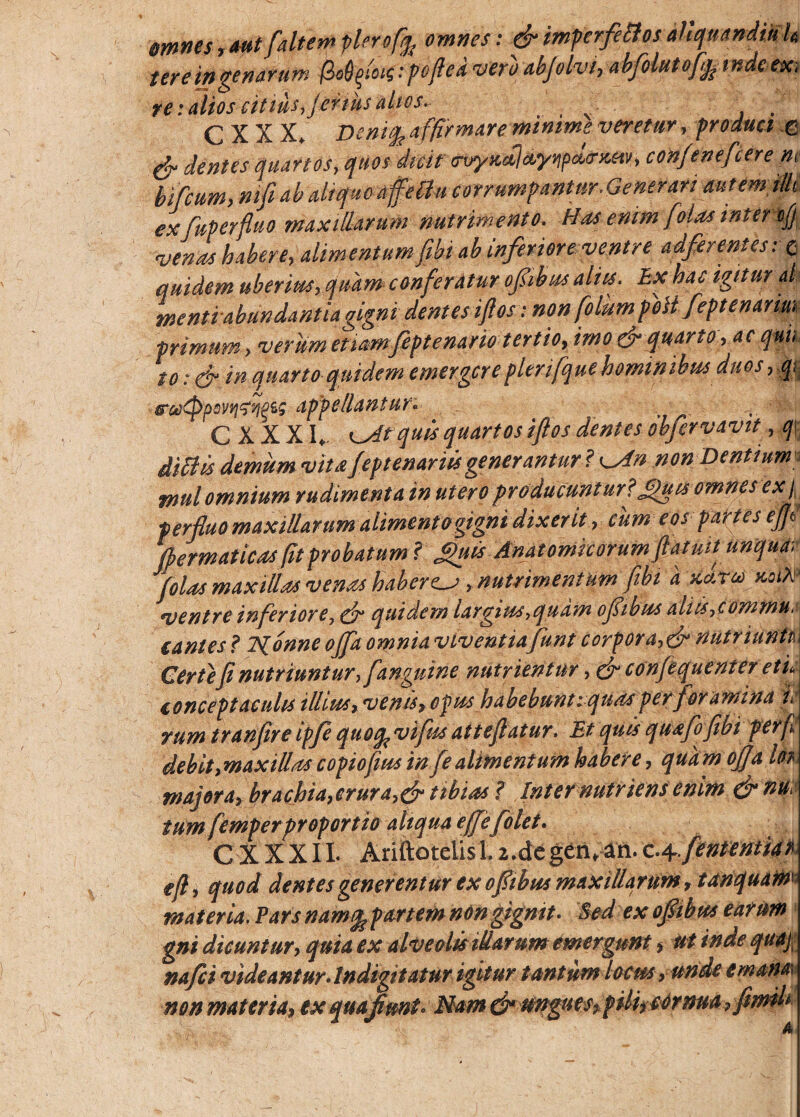 omnes, aut saltem plerosq; omnes: & imperfectos aliquandiu la
tere in genarum βοθρίοις: postea vero absolvi, absolutosq; inde ex
re: alios citius, serius alios.
C X X X. Deniq; affirmare minime veretur, produci
& dentes quartos, quos dicit
bifcum, nisi ab aliquo affectu corrumpantur. Generari autem illi
ex superfluo maxillarum nutrimento. Has enim solas inter oss
venas habere, alimentum sibi ab inferiore ventre adferentes:
quidem uberius, quam conferatur ossibus aliis. Ex hac igitur al
menti abundantia gigni dentes istos: non solum post septenarium
primum, verum etiam septenario tertio, imo & quarto, ac quin
to: & in quarto quidem emergere plerisque hominibus duos, q
appellantur.
C X X X I. At quis quartos istos dentes observavit, q
dictis demum vitæ septenariis generantur? An non Dentium
mul omnium rudimenta in utero producuntur? Quis omnes ex
perfluo maxillarum alimento gigni dixerit, cum eos partes esse
spermaticas sit probatum? Quis Anatomicorum statuit unquam
solas maxillas venas habere, nutrimentum sibi à κάτω κοιλ
ventre inferiore, & quidem largius, quàm ossibus aliis, commu
cantes? Nónne ossa omnia viventia sunt corpora, & nutriuntu
Certe si nutriuntur, sanguine nutrientur, & consequenter eti
conceptaculis illius, venis, opus habebunt: quas per foramina
rum transire ipse quoq; visus attestatur. Et quis quæso sibi pers
debit, maxillas copiosius in se alimentum habere, quàm ossa lon
majora, brachia, crura, & tibias? Inter nutriens enim & nu
tum semper proportio aliqua esse solet.
C X X X I I. Aristotelis l. 2. de gen. an. c. 4. sententia
est, quod dentes generentur ex ossibus maxillarum, tanquam
materia. Pars namq; partem non gignit. Sed ex ossibus earum
gni dicuntur, quia ex alveolis illarum emergunt, ut inde quasi
nasci videantur. Indigitatur igitur tantùm locus, unde emana
non materia, ex qua fiunt. Nam & ungues, pili, cornua, simili